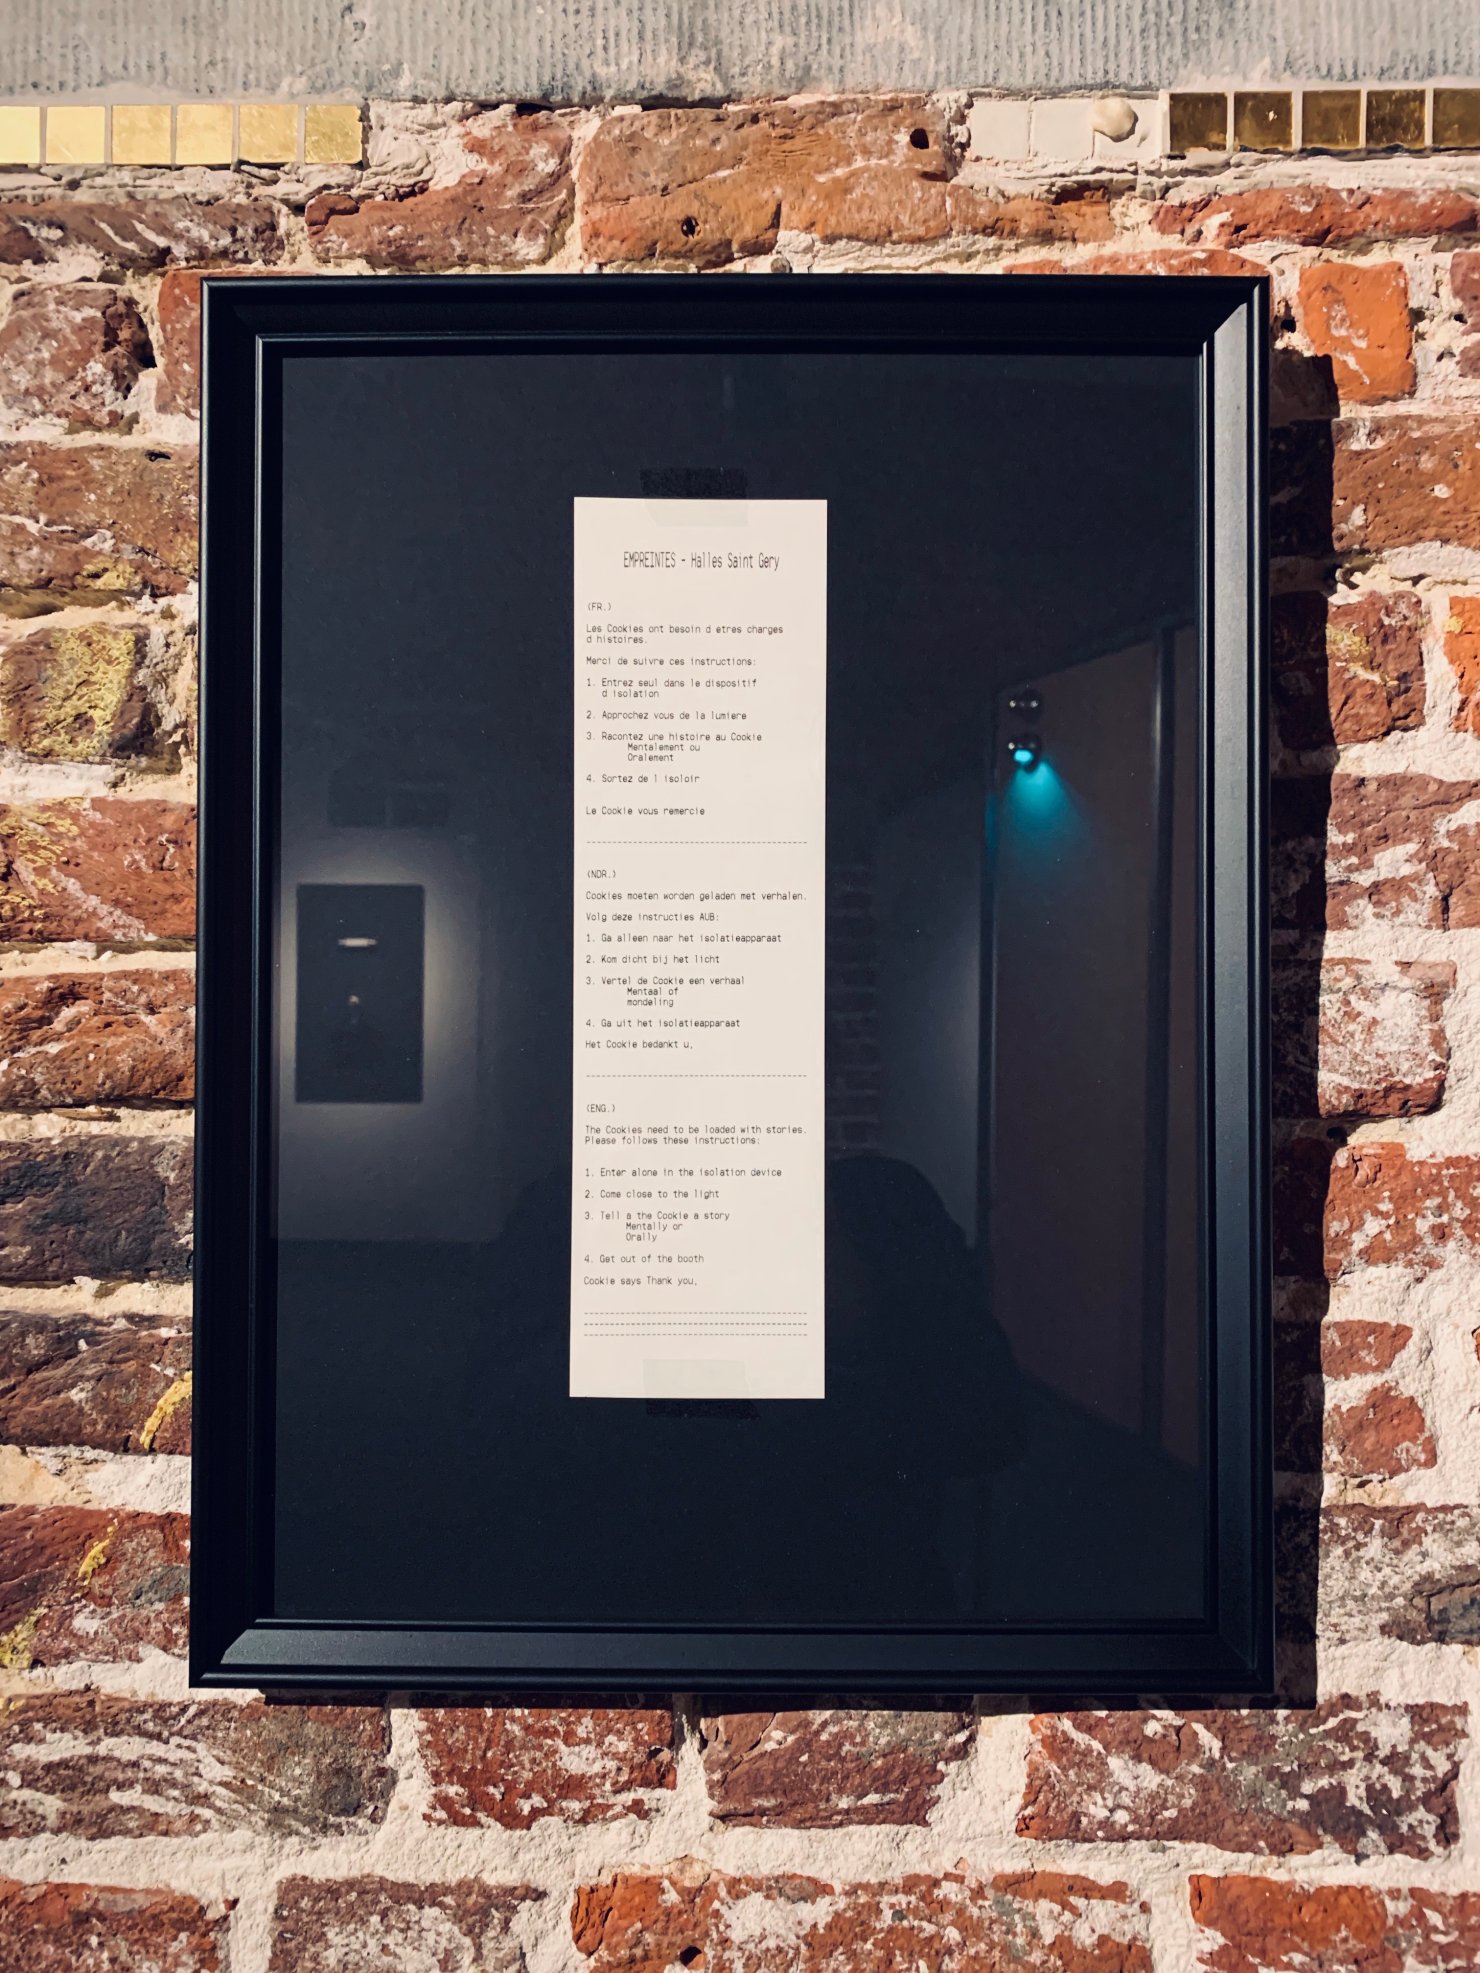 EMPREINTES - Halles Saint Gery
(FR.)
Les Cookies ont besoin d etres charges
d histoires.
Merci de suivre ces instructions:
1. Entrez seul dans le dispositif
d isolation
2. Approchez vous de la lumiere
3. Racontez une histoire au Cookie
Mentalement ou
Oralement
4. Sortez de l isoloir
Le Cookie vous remercie
(NDR.)
Cookies moeten worden geladen met verhalen.
Volg deze instructies AUB:
1. Ga alleen naar het isolatieapparaat
2. Kom dicht bij het licht
3. Vertel de Cookie een verhaal
Mentaal of
mondeling
4. Ga uit het isolatieapparaat
Het Cookie bedankt u,
(ENG.)
The Cookies need to be loaded with stories.
Please follows these instructions:
1. Enter alone in the isolation device
2. Come close to the light
3. Tell a the Cookie a story
Mentally or
Orally
4. Get out of the booth
Cookie says Thank you,